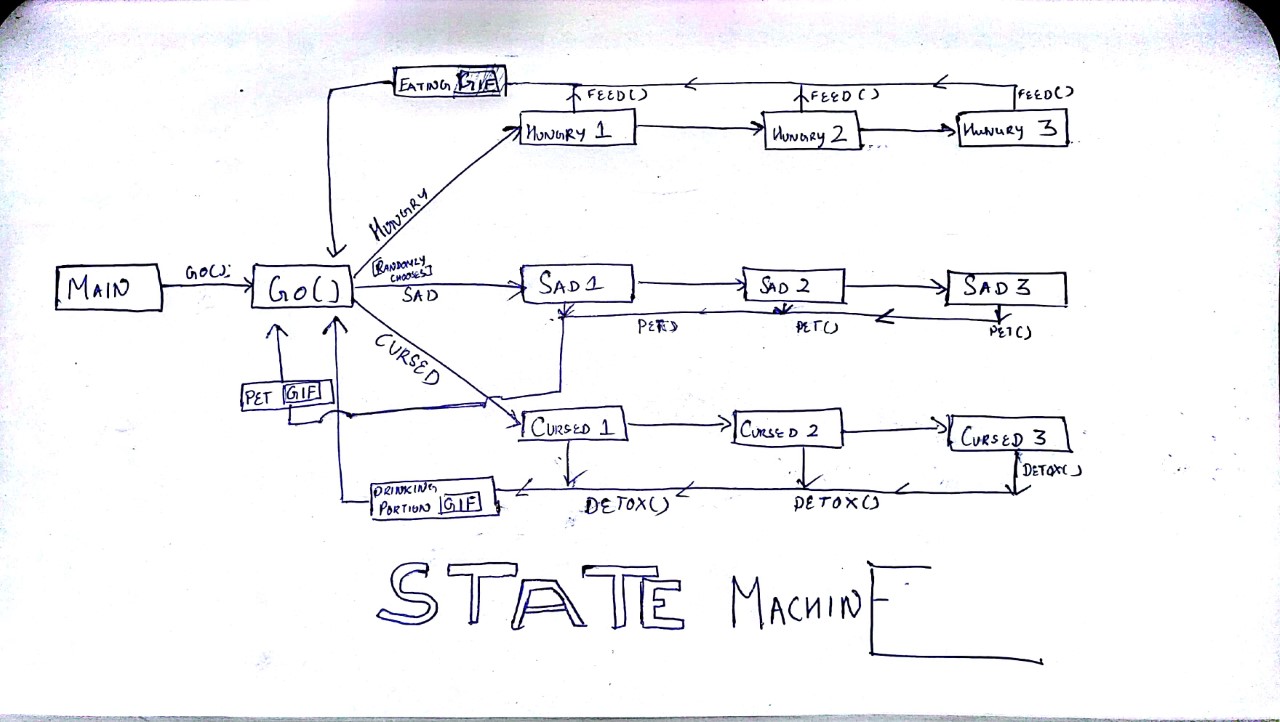 EATING GIF
FEED()
FEED()
FEED()
HUNGRY 1
HUNGRY 2
HUNGRY 3
HUNGRY
MAIN
GO();
GO()
[RANDOMLY
CHOOSES]
SAD
SAD 1
SAD 2
SAD 3
PET()
PET()
PET()
CURSED
PET GIF
CURSED 1
CURSED 2
CURSED 3
DETOX()
DRINKING
PORTION GIF
DETOX()
DETOX()
STATE MACHINE